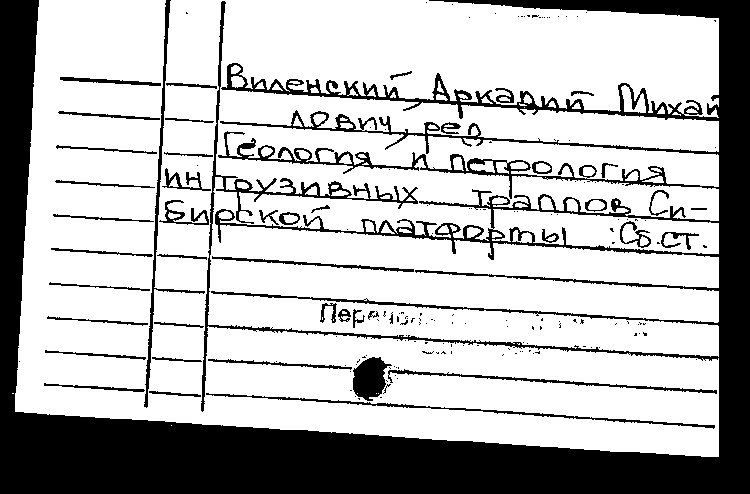 Виленский, Аркадий Михай
лович, ред.
Геология и петрология
интрузивных траппов Си-
бирской платформы : Сб.ст.